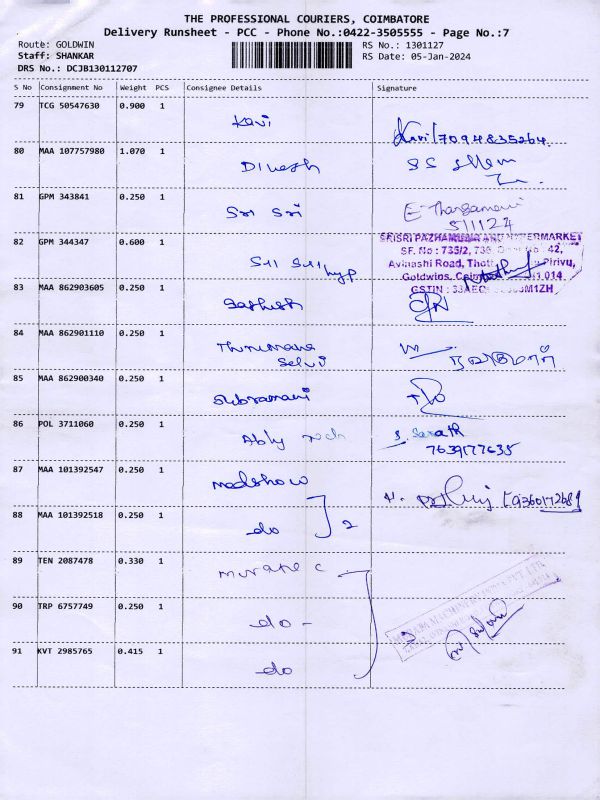 THE PROFESSIONAL COURIERS, COIMBATORE
Delivery Runsheet - PCC - Phone No.:0422-3505555 - Page No.:7
Route: GOLDWIN RS No.: 1301127
Staff: SHANKAR RS Date: 05-Jan-2024
DRS No.: DCJB130112707
S No Consignment No Weight PCS Consignee Details Signature
79 TCG 50547630 0.900 1
Kavi Kavi/7094835264
80 MAA 107757980 1.070 1
Dinesh
81 GPM 343841 0.250 1
Sri Sri E. Thangamani
5/1/24
82 GPM 344347 0.600 1
Sri Sri hyp
SF. No : 735/2, 42,
Avinashi Road, Pirivu,
Goldwins,
83 MAA 862903605 0.250 1
Sathish
84 MAA 862901110 0.250 1
Thirumana
Selvi
85 MAA 862900340 0.250 1
Subramani
86 POL 3711060 0.250 1
Ably tech S. Sarath
7639177635
87 MAA 101392547 0.250 1
Medshow
88 MAA 101392518 0.250 1
do 2
89 TEN 2087478 0.330 1
90 TRP 6757749 0.250 1
do -
91 KVT 2985765 0.415 1
do